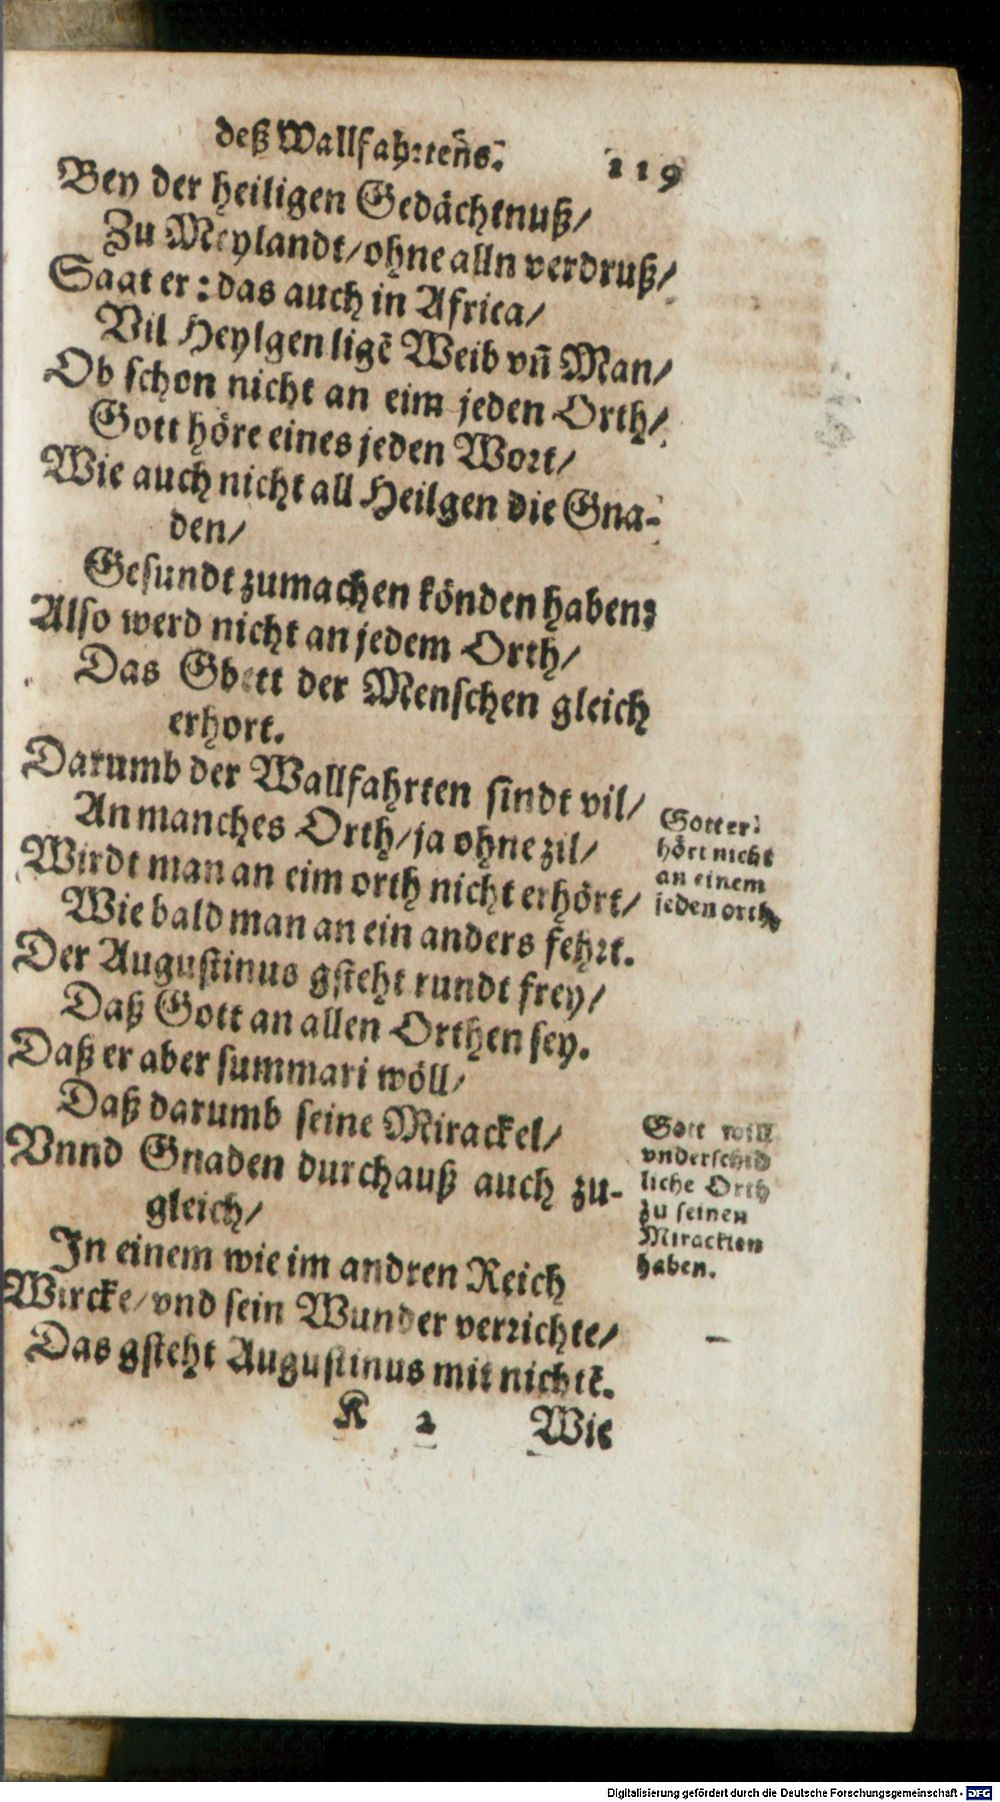 deß Wallfahrtens̃. 119
Bey der heiligen Gedächtnuß/
Zu Meylandt/ ohne alln verdruß/
Sagt er: das auch in Africa/
Vil Heylgen ligẽ Weib vñ Man/
Ob schon nicht an eim jeden Orth/
Gott höre eines jeden Wort/
Wie auch nicht all Heilgen die Gna-
den/
Gesundt zumachen könden haben:
Also werd nicht an jedem Orth/
Das Gbett der Menschen gleich
erhort.
Darumb der Wallfahrten sindt vil/
An manches Orth/ ja ohne zil/
Wirdt man an eim orth nicht erhört/
Wie bald man an ein anders fehrt.
Der Augustinus gsteht rundt frey/
Daß Gott an allen Orthen sey.
Daß er aber summari wöll/
Daß darumb seine Mirackel/
Vnnd Gnaden durchauß auch zu-
gleich/
In einem wie im andren Reich
Wircke/ vnd sein Wunder verrichte/
Das gsteht Augustinus mit nichtẽ.
K 2 Wie
Gott er-
hört nicht
an einem
jeden orth.
Gott will
vnderschid
liche Orth
zu seinen
Miracklen
haben.
Digitalisierung gefördert durch die Deutsche Forschungsgemeinschaft - DFG